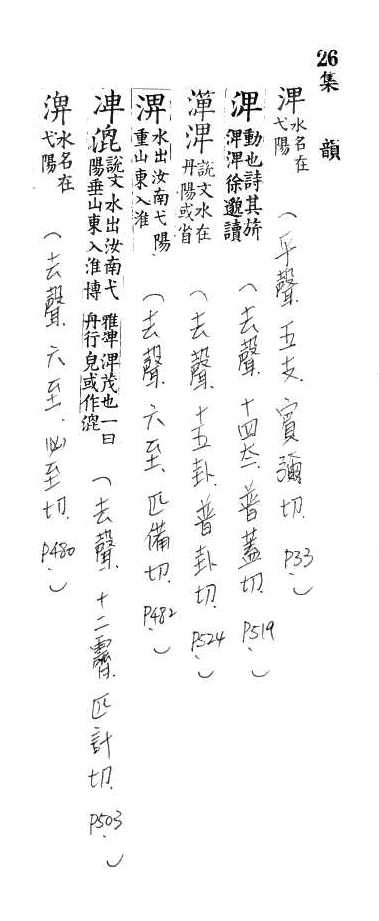 26 集 韻
淠 水名在弋陽 (平聲.五支.賓彌切.P33.)
淠 動也詩其旂淠淠徐邈讀 (去聲.十四太.普蓋切.P519.)
渒淠 說文水在丹陽或省 (去聲.十五卦.普卦切.P524.)
淠 水出汝南弋陽垂山東入淮 (去聲.六至.匹備切.P482.)
淠 說文水出汝南弋陽垂山東入淮博雅淠淠茂也一曰舟行皃或作 (去聲.十二霽.匹計切.P503.)
淠 水名在弋陽 (去聲.六至.必至切.P480.)